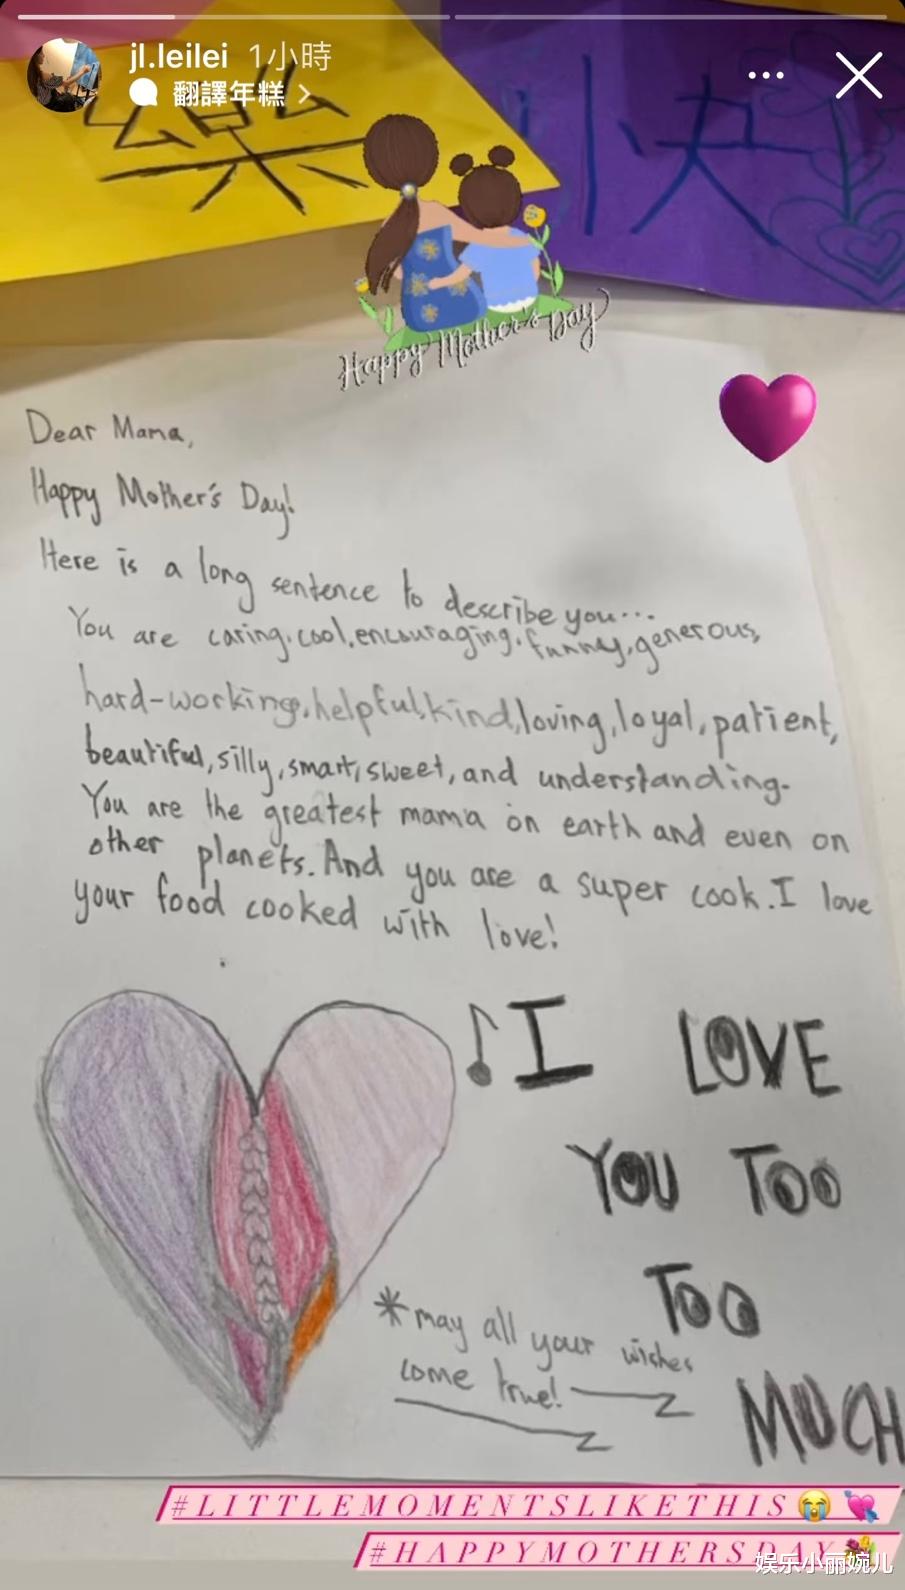 jl.leilei 1小時
翻譯年糕 >
樂 快
Happy Mother's Day
Dear Mama,
Happy Mother's Day!
Here is a long sentence to describe you...
You are caring, cool, encouraging, funny, generous,
hard-working, helpful, kind, loving, loyal, patient,
beautiful, silly, smart, sweet, and understanding.
You are the greatest mama on earth and even on
other planets. And you are a super cook. I love
your food cooked with love!
♪ I LOVE
YOU TOO
TOO
*may all your wishes
come true!
MUCH
#LITTLEMOMENTSLIKETHIS😭💘
#HAPPYMOTHERSDAY💐
娱乐小丽婉儿